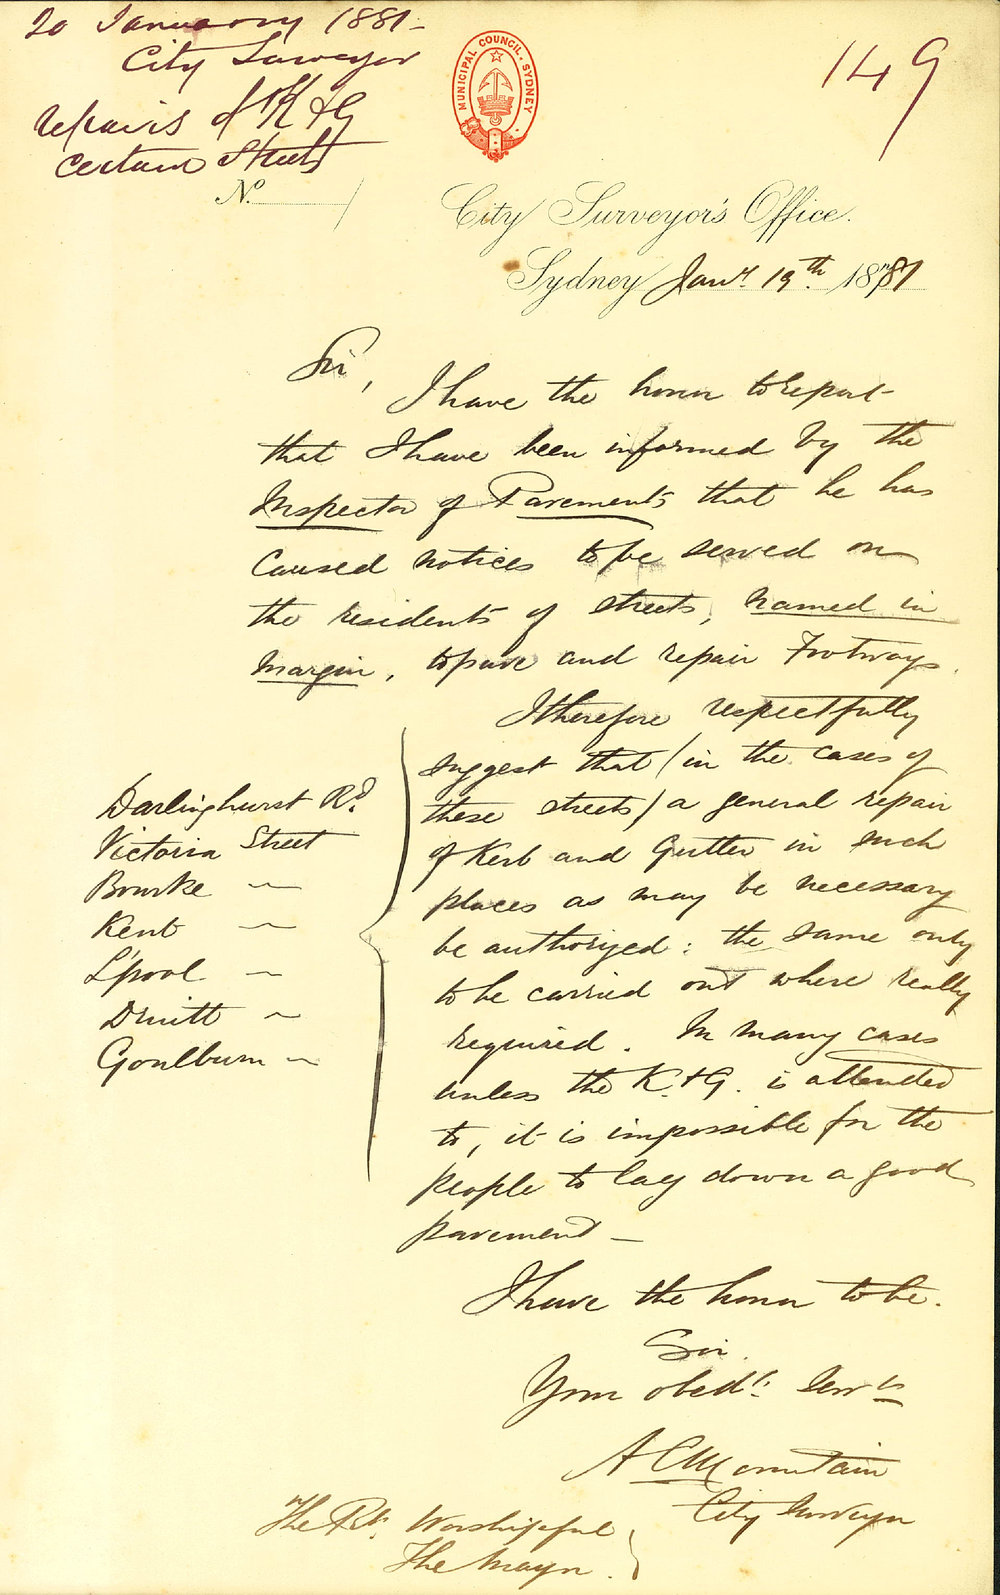 20 January 1881-
City Surveyor
repairs of K & G
certain Streets
149
MUNICIPAL COUNCIL. SYDNEY
No.
City Surveyor's Office.
Sydney Jany. 19th. 1881
Sir,
I have the honor to report
that I have been informed by the
Inspector of Pavements that he has
caused notices to be served on
the residents of streets, named in
margin, to pave and repair Footways.
I therefore respectfully
suggest that (in the cases of
these streets) a general repair
of Kerb and Gutter in such
places as may be necessary
be authorized: the same only
to be carried out where really
required. In many cases
unless the K. & G. is attended
to, it is impossible for the
people to lay down a good
pavement —
Darlinghurst Rd.
Victoria Street
Bourke ~
Kent ~
L'pool ~
Druitt ~
Goulburn ~
I have the honor to be.
Sir.
Your obedt. Servt
A C Mountain
City Surveyor
The Rt. Worshipful
The Mayor.